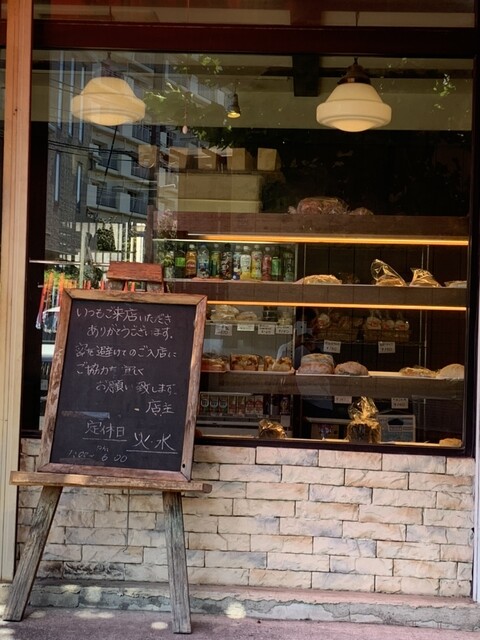 いつもご来店いただき
ありがとうございます。
密を避けてのご入店に
ご協力
お願い致します
- 店主
定休日 火、水